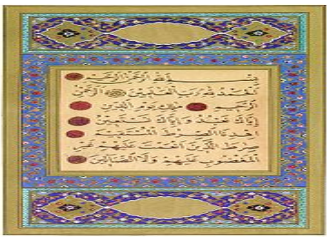 بسم الله الرحمن الرحيم
الحمد لله رب العلمين الرحمن
الرحيم ملك يوم الدين
إياك نعبد وإياك نستعين
اهدنا الصرط المستقيم
صرط الذين أنعمت عليهم غير
المغضوب عليهم ولا الضالين